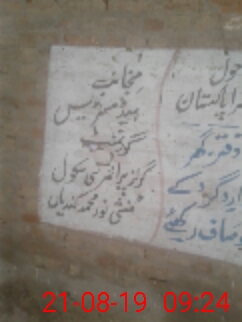 منجانب
ہیڈ مسٹریس
گورنمنٹ
گرلز پرائمری سکول
منشی نور محمد کندیاں
حول
را پاکستان
دفتر گھر
ارد گرد کے
صاف رکھیئے
21-08-19 09:24